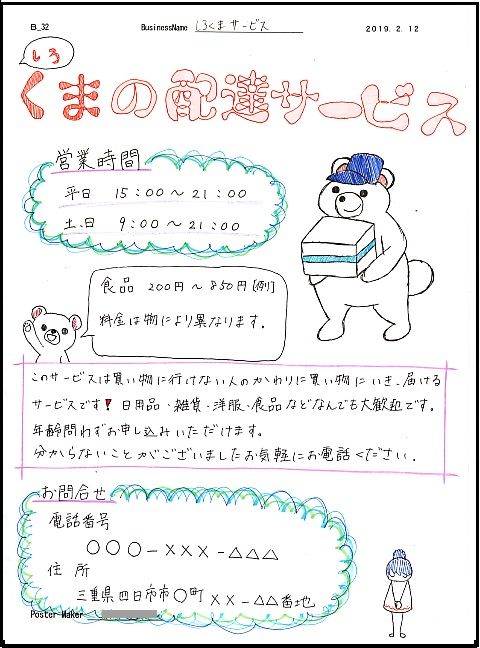 B_32 BusinessName しろくまサービス 2019. 2. 12
しろ
くまの配達サービス
営業時間
平日 15:00〜21:00
土.日 9:00〜21:00
食品 200円〜850円[例]
料金は物により異なります.
このサービスは買い物に行けない人のかわりに買い物にいき.届ける
サービスです!日用品・雑貨・洋服・食品などなんでも大歓迎です。
年齢問わずお申し込みいただけます。
分からないことがございましたお気軽にお電話ください.
お問合せ
電話番号
○○○-×××-△△△
住所
三重県四日市市○町××-△△番地
Poster-Maker